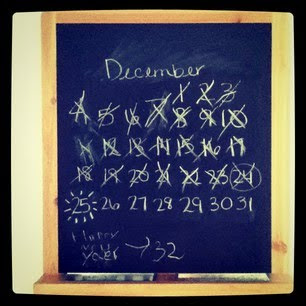 December
1 2 3
4 5 6 7 8 9 10
11 12 13 14 15 16 17
18 19 20 21 22 23 24
25 26 27 28 29 30 31
Happy
year → 32